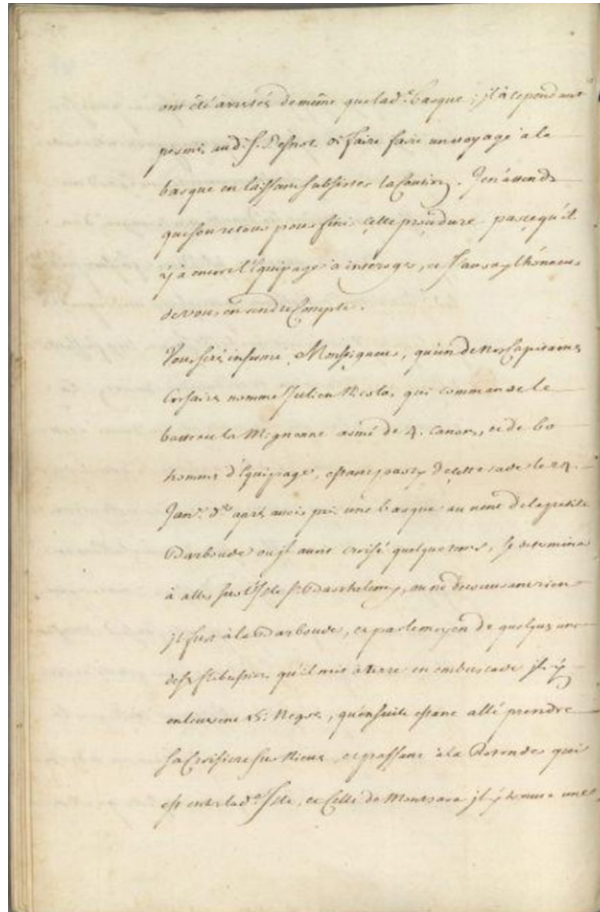 ont été arretés de même que lad.e barque ; jl à cependant
permis aud. S. de faire faire un voyage à la
barque en laissant subsister la Caution. J'en attends
que son retour pour finir cette procedure parcequ'il
y à encore l'Equipage à interoger, et J'auray l'honneur
de vous en rendre Compte.
Vous serés informé, Monseigneur, qu'un de nos Capitaines
Corsaires nommé Julien Nicolas qui commande le
batteau la Mignonne armé de 4. canons, et de 60
hommes d'Equipage, estant party de cette rade le 24.
Janv.r d.er aprés avoir pris une barque au vent de la petite
Barboude ou jl avoit croisé quelque tems, se determina
à aller sur l'Isle S.t Barthelemy, ou ne trouvant rien
jl fust à la Barboude, et par le moyen de quelques uns
de ses flibustiers qu'il mit à terre en embuscade jl y
enleva une 15.e Negres, qu'ensuite estant allé prendre
sa Croisiere sur Nieve, et passant à la Rotonde qui
est entre lad.e Isle, et Celle de Montsara jl y trouva une